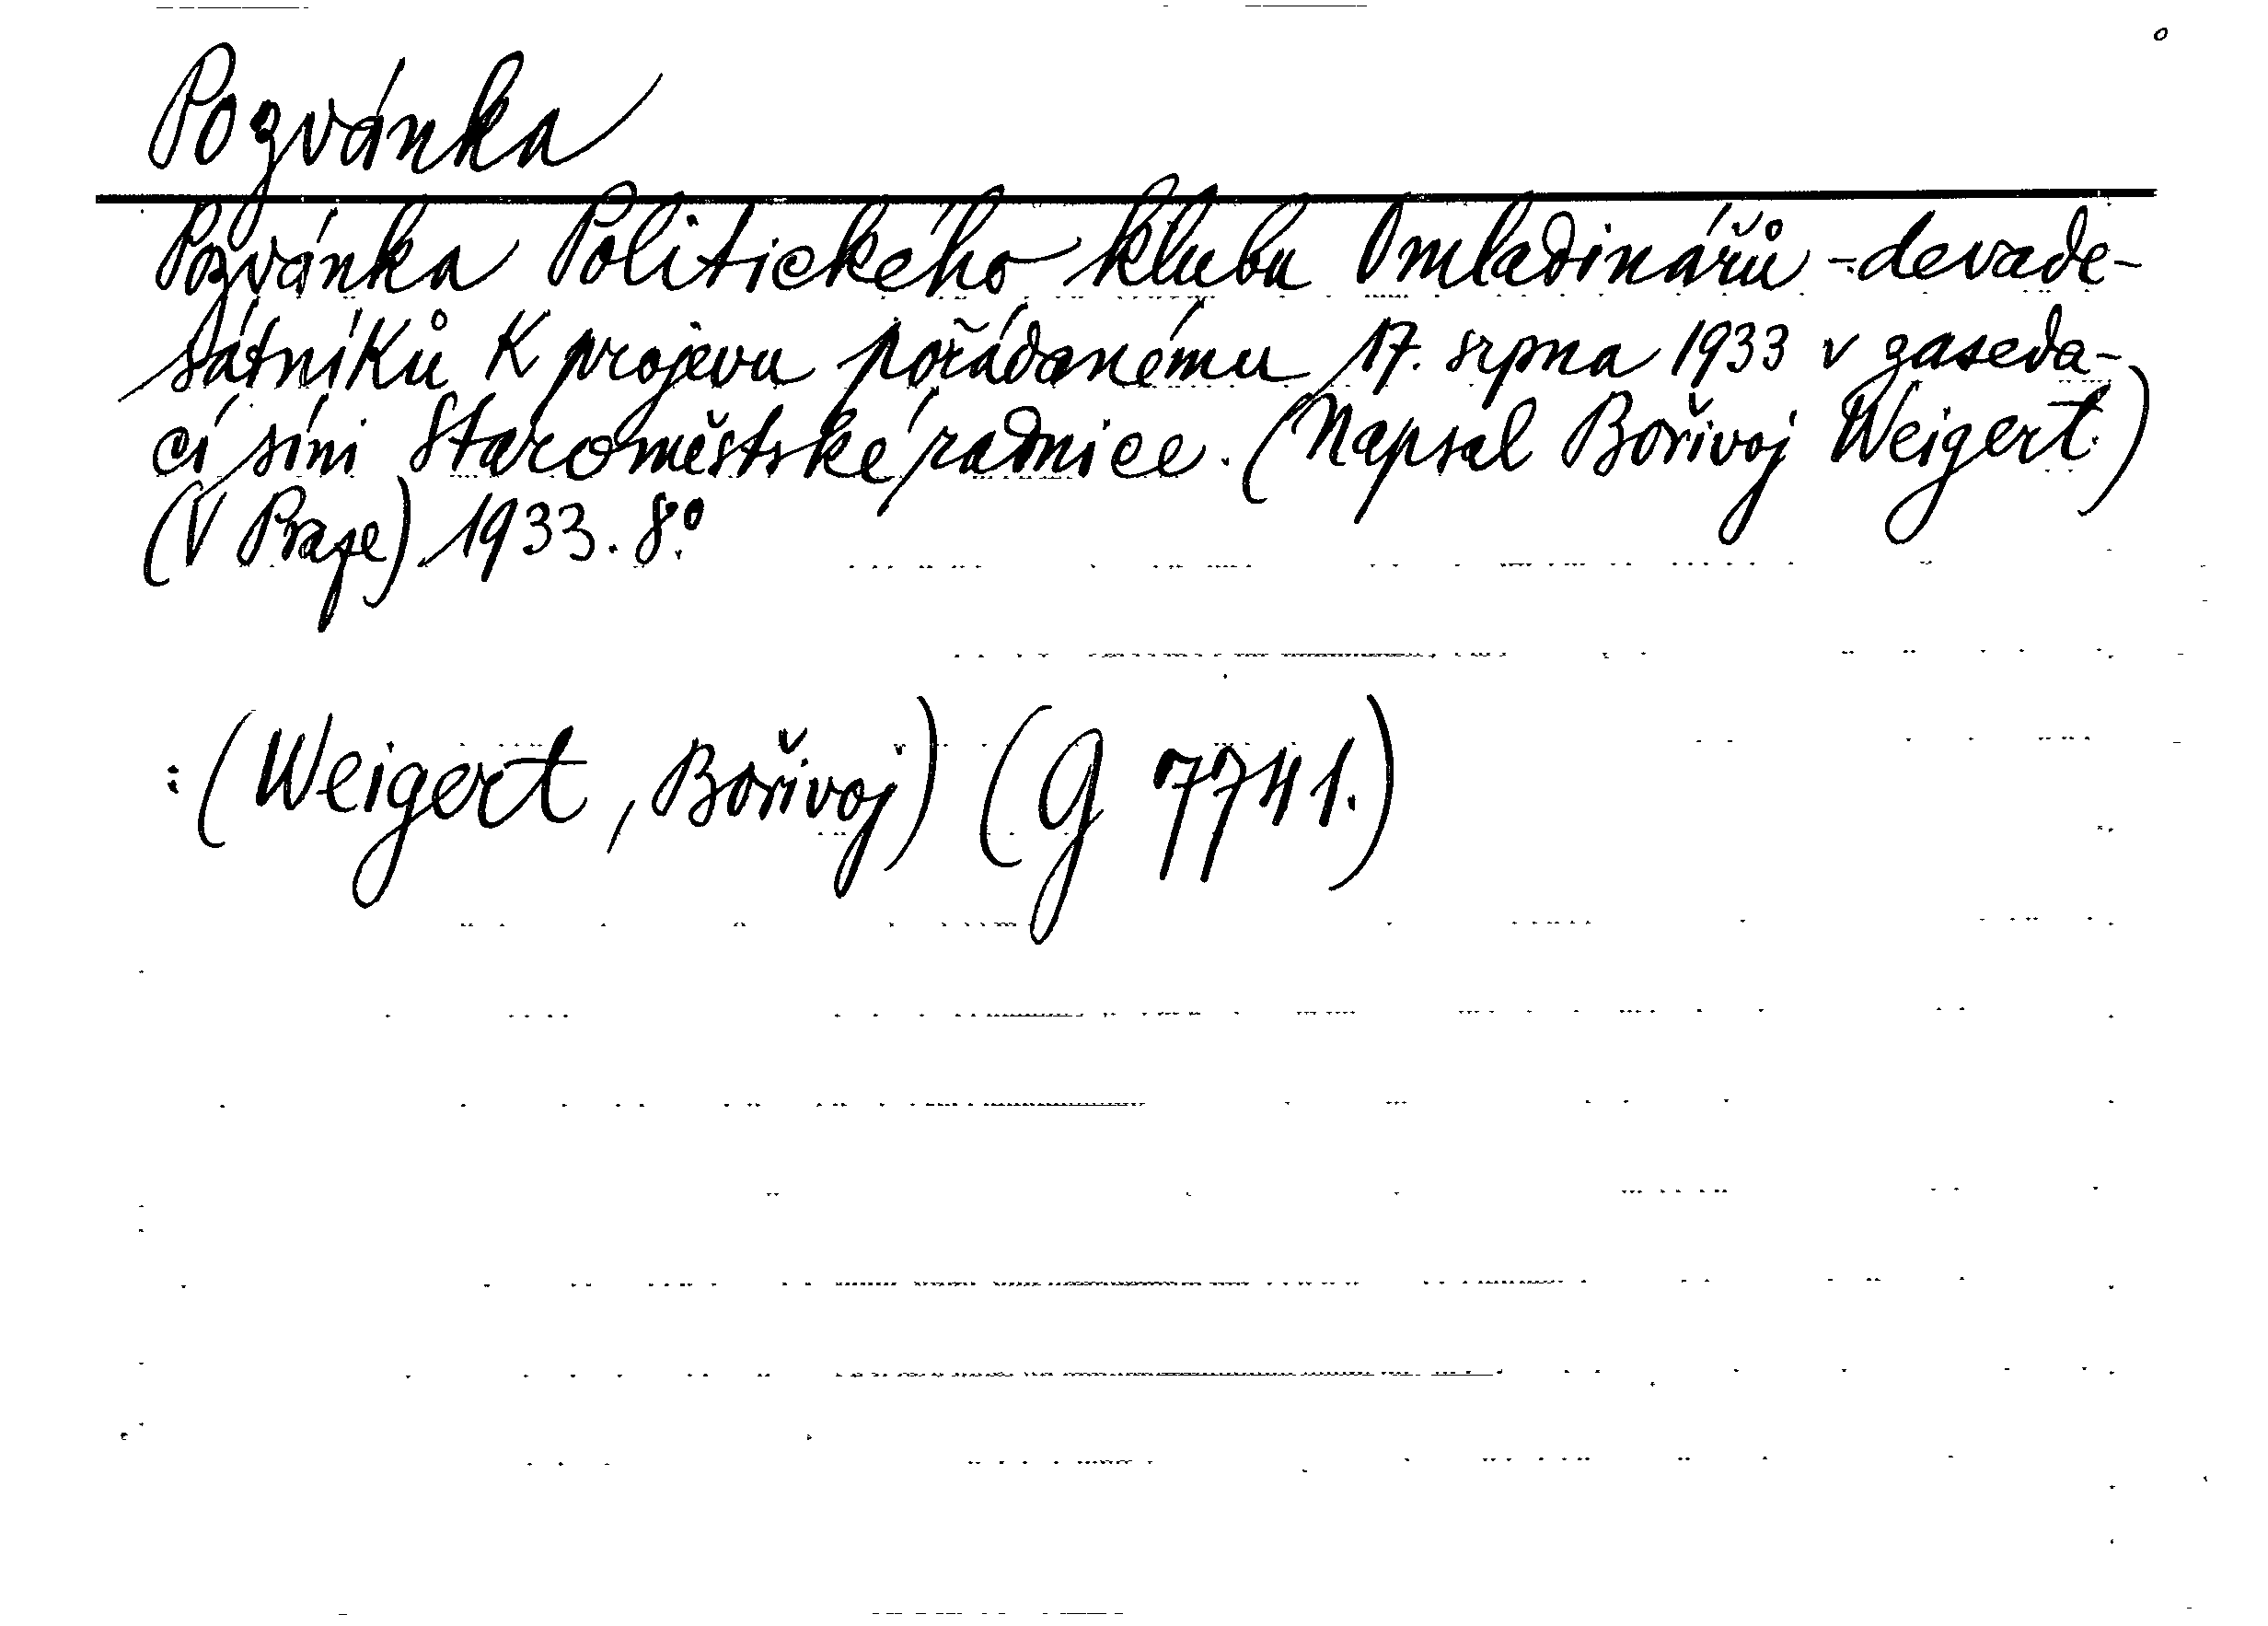 Pozvánka
Pozvánka Politického klubu Omladinářů - devade-
sátníků k projevu pořádanému 17. srpna 1933 v zaseda-
cí síni Staroměstské radnice. (Napsal Bořivoj Weigert.)
(V Praze) 1933. 8°.
: (Weigert, Bořivoj) (G 7741.)